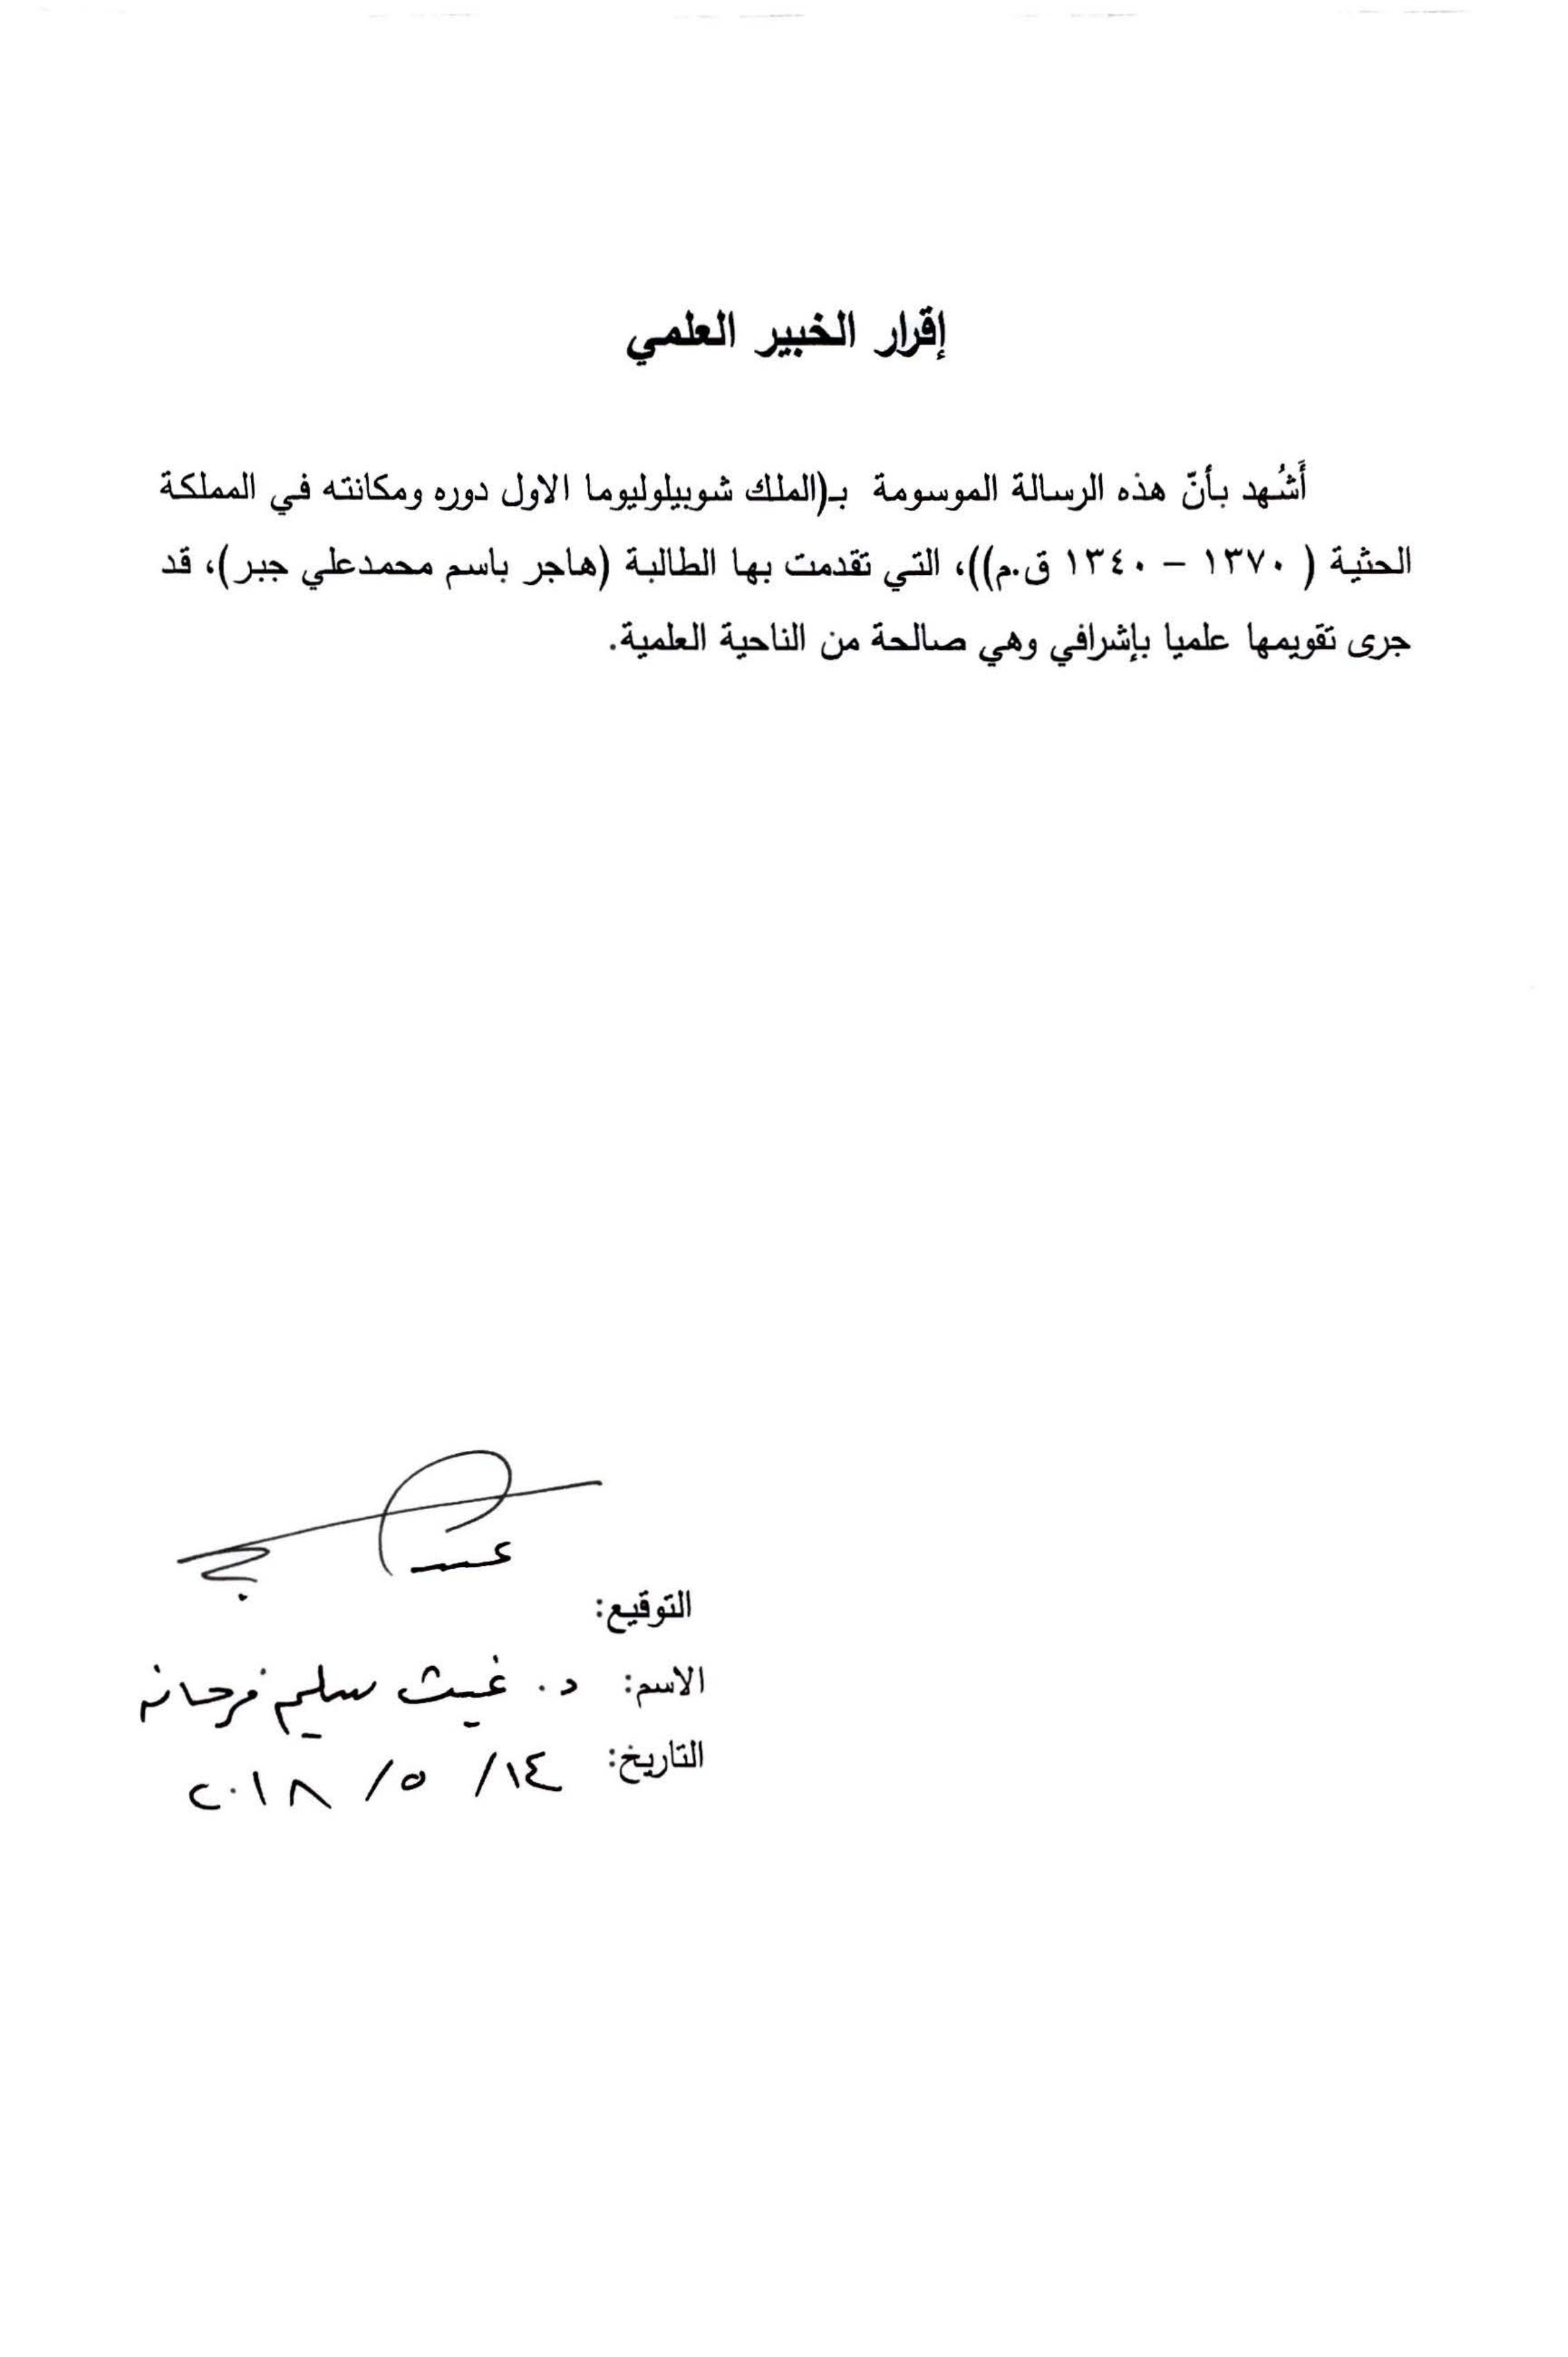 إقرار الخبير العلمي
أَشُهد بأنّ هذه الرسالة الموسومة بـ(الملك شوبيلوليوما الاول دوره ومكانته في المملكة
الحثية ( ١٣٧٠ – ١٣٤٠ ق.م))، التي تقدمت بها الطالبة (هاجر باسم محمدعلي جبر)، قد
جرى تقويمها علميا بإشرافي وهي صالحة من الناحية العلمية.
التوقيع:
الاسم: د. غيث سليم فرحان
التاريخ: ١٤/ ٥/ ٢٠١٨